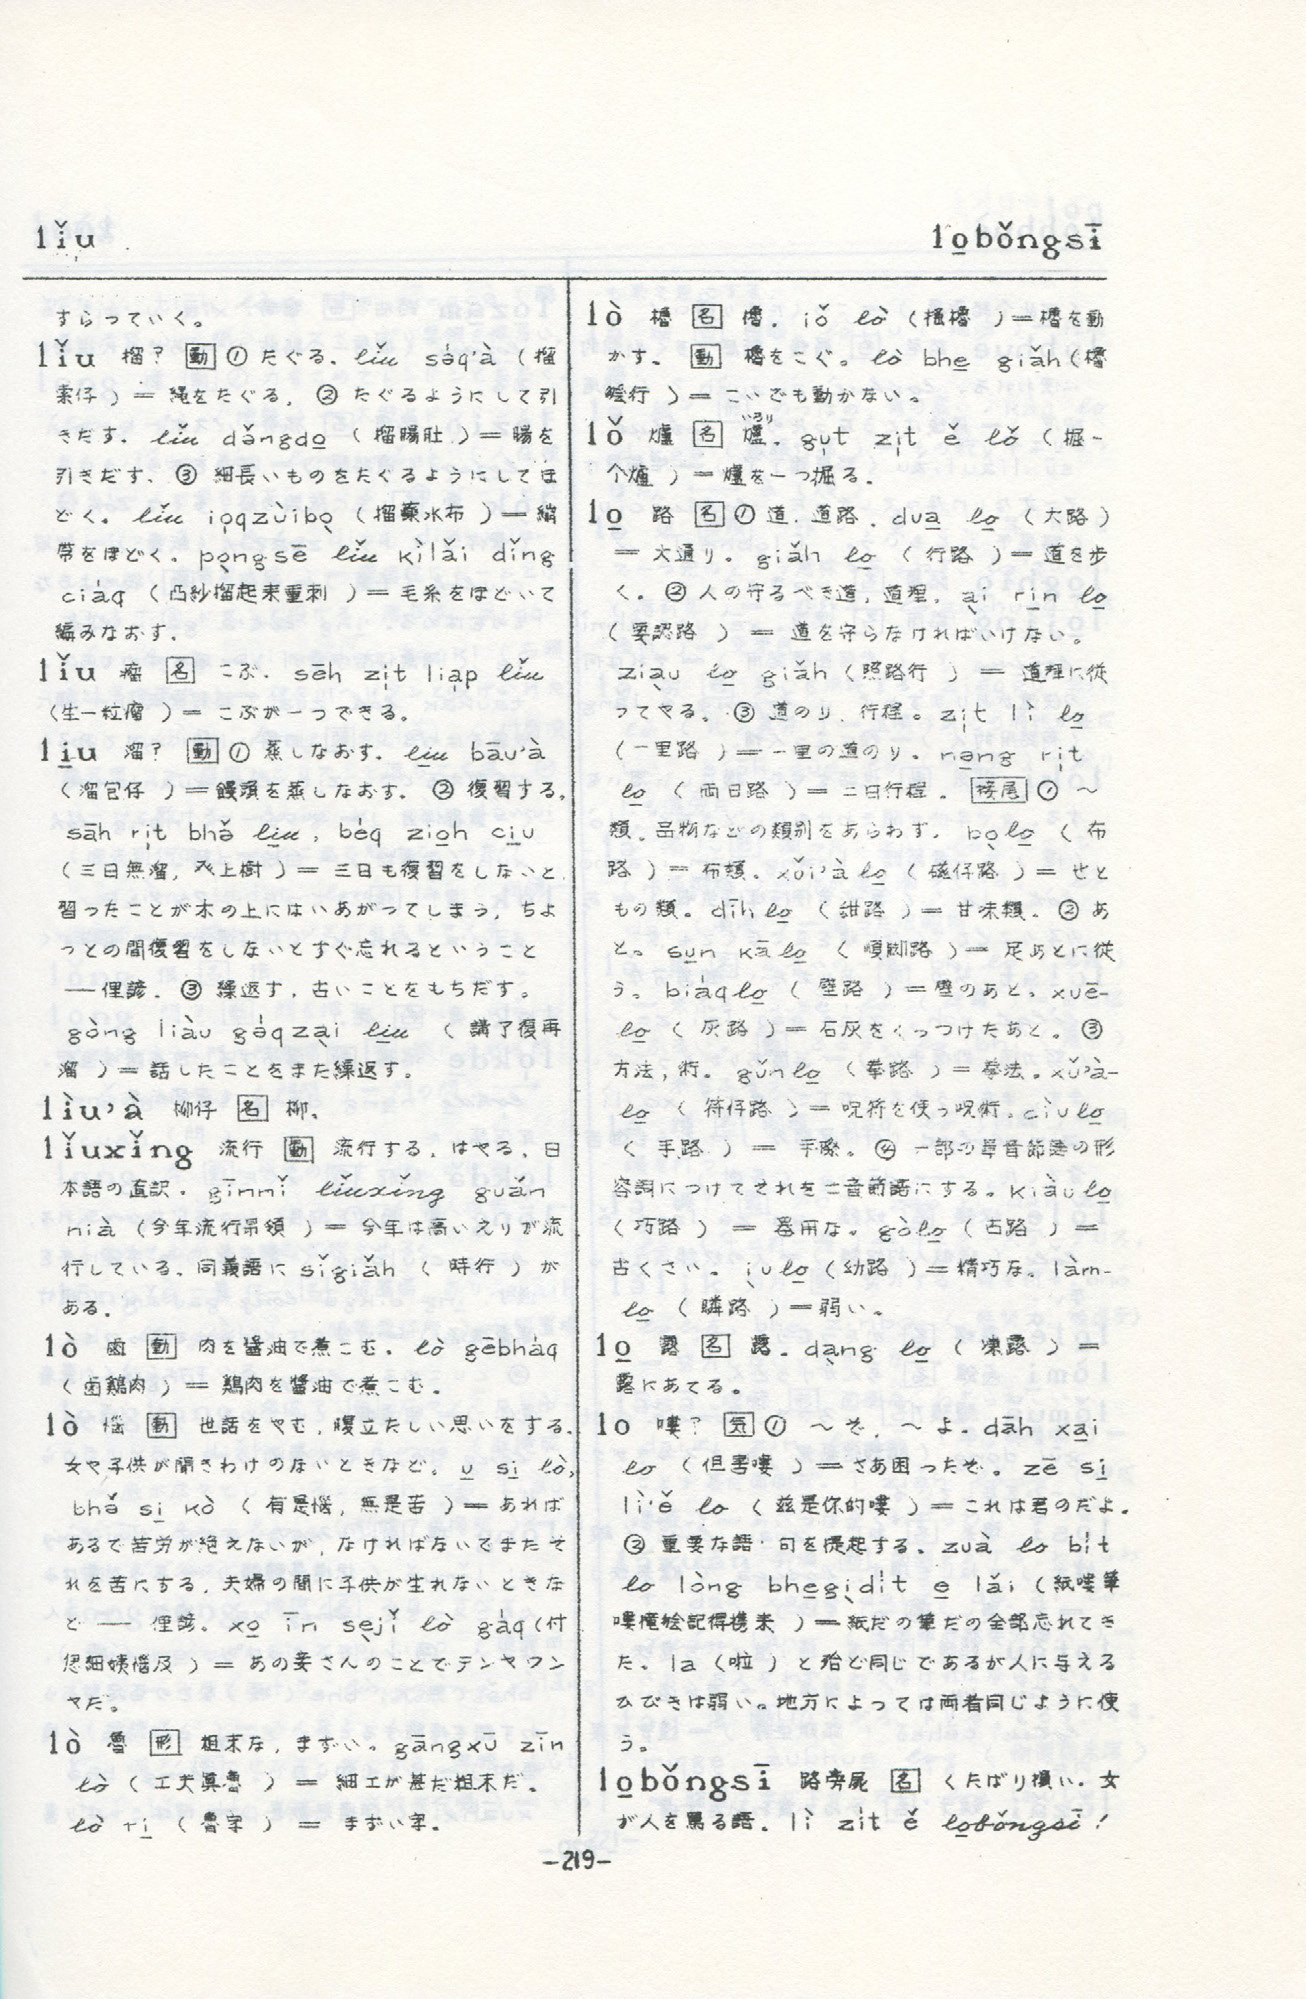 lǐu
lo̲bǒngsī
すらっていく。
lǐu 榴? 動 ① たぐる. lǐu sȯq'à (榴
索仔) = 縄をたぐる, ② たぐるようにして引
きだす. lǐu dǎngdo̲ (榴腸肚) = 腸を
引きだす、③ 細長いものをたぐるようにしてほ
どく。 lǐu iọqzùibọ (榴藥水布) = 繃
帯をほどく。 pọngsē lǐu kìlǎi dǐng
ciȧq (凸紗榴起来重刺) = 毛糸をほどいて
編みなおす.
lǐu 瘤 名 こぶ. sēh zịt liạp lǐu
(生一粒瘤) = こぶが一つできる.
li̲u 溜? 動 ① 蒸しなおす. li̲u bāu'à
(溜包仔) = 饅頭を蒸しなおす. ② 復習する.
sāh rịt bhǒ li̲u, bėq zio̲h ci̲u
(三日無溜, 上樹) = 三日も復習をしないと,
習ったことが木の上にはいあがってしまう, ちょ
っとの間復習をしないとすぐ忘れるということ
—俚諺. ③ 繰返す, 古いことをもちだす。
gòng liàu gȧqzại li̲u (講了復再
溜) = 話したことをまた繰返す.
lìu'à 柳仔 名 柳.
lǐuxǐng 流行 動 流行する, はやる, 日
本語の直訳. gīnnǐ lǐuxǐng guǎn
nià (今年流行吊領) = 今年は高いえりが流
行している、同義語に sǐgiǎh (時行) が
ある.
lò 鹵 動 肉を醤油で煮こむ. lò gēbhȧq
(鹵鶏肉) = 鶏肉を醤油で煮こむ.
lò 惱 動 世話をやむ, 腹立たしい思いをする.
女や子供が聞きわけのないときなど. u̲ si̲ lò,
bhǒ si̲ kò (有是惱, 無是苦) = あれば
あるで苦労が絶えないが, なければないでまたそ
れを苦にする, 夫婦の間に子供が生れないときな
ど — 俚諺. xo̲ īn sẹjǐ lò gȧq (付
細姨惱及) = あの妾さんのことでテンヤワン
ヤだ.
lò 魯 形 粗末な, まずい. gāngxū zīn
lò (工夫真魯) = 細工が甚だ粗末だ.
lò ri̲ (魯字) = まずい字.
lò 櫓 名 櫓. iǒ lò (搖櫓) = 櫓を動
かす. 動 櫓をこぐ。 lò bhe̲ giǎh (櫓
行) = こいでも動かない.
lǒ 爐 名 爐(いろり). gụt zịt ě lǒ (掘一
个爐) = 爐を一つ掘る.
lo̲ 路 名 ① 道, 道路. dua̲ lo̲ (大路)
= 大通り. giǎh lo̲ (行路) = 道を歩
く. ② 人の守るべき道, 道理. ại ri̲n lo̲
(要認路) = 道を守らなければいけない。
ziạu lo̲ giǎh (照路行) = 道理に従
ってやる. ③ 道のり, 行程。 zịt lì lo̲
(一里路) = 一里の道のり. nǝ̲ng rịt
lo̲ (両日路) = 二日行程. 接尾 ① ～
類. 品物などの類別をあらわす. bọlo̲ (布
路) = 布類. xǔi'à lo̲ (磁仔路) = せと
もの類. dīh lo̲ (甜路) = 甘味類. ② あ
と. su̲n kā lo̲ (順脚路) = 足あとに従
う. biȧqlo̲ (壁路) = 壁のあと. xuē-
lo̲ (灰路) = 石灰をくっつけたあと. ③
方法, 術. gǔnlo̲ (拳路) = 拳法. xǔ'à-
lo̲ (符仔路) = 呪符を使う呪術. cìulo̲
(手路) = 手際. ④ 一部の単音節語の形
容詞につけてそれを二音節語にする. kiàulo̲
(巧路) = 器用な. gòlo̲ (古路) =
古くさい. ịulo̲ (幼路) = 精巧な. làm-
lo̲ (路) = 弱い.
lo̲ 露 名 露. dạng lo̲ (凍露) =
露にあてる.
lo 嘍? 気 ① ～ぞ, ～よ. dāh xa̲i
lo (但害嘍) = さあ困ったぞ. zē si̲
lì'ě lo (茲是你的嘍) = これは君のだよ.
② 重要な語・句を提起する. zuà lo bịt
lo lòng bhe̲gịdịt e̲ lǎi (紙嘍筆
嘍攏記得来) = 紙だの筆だの全部忘れてき
た. la (啦) と殆ど同じであるが人に与える
ひびきは弱い。地方によっては両者同じように使
う.
lo̲bǒngsī 路旁屍 名 くたばり損い. 女
が人を罵る語. lì zịt ě lo̲bǒngsī!
-219-